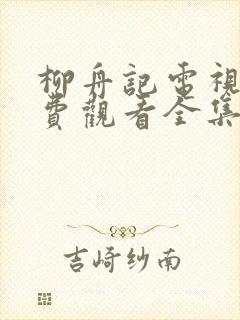 柳舟記電視
費觀看全集
吉崎纱南